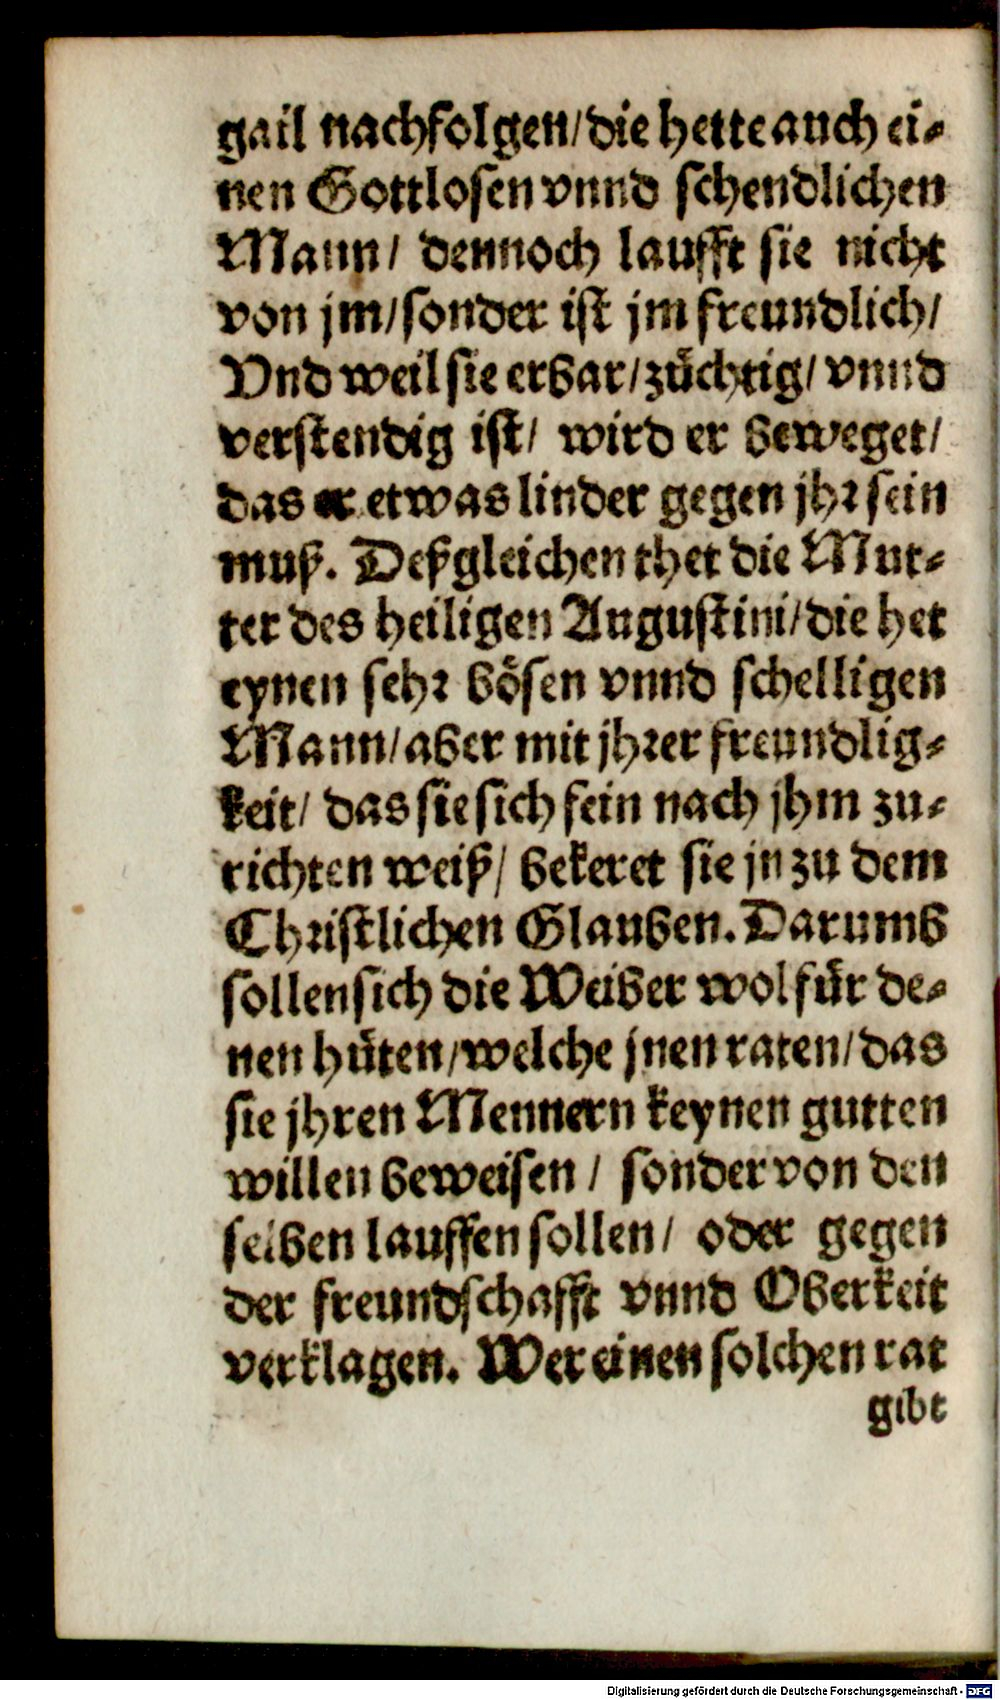 gail nachfolgen/die hette auch ei-
nen Gottlosen vnnd schendlichen
Mann/ dennoch laufft sie nicht
von jm/sonder ist jm freundlich/
Vnd weil sie erbar/züchtig/ vnnd
verstendig ist/ wird er beweget/
das er etwas linder gegen jhr sein
muß. Deßgleichen thet die Mut-
ter des heiligen Augustini/die het
eynen sehr bösen vnnd schelligen
Mann/aber mit jhrer freundlig-
keit/ das sie sich fein nach jhm zu-
richten weiß/ bekeret sie jn zu dem
Christlichen Glauben. Darumb
sollen sich die Weiber wol für de-
nen hüten/welche jnen raten/das
sie jhren Mennern keynen gutten
willen beweisen/ sonder von den
selben lauffen sollen/ oder gegen
der freundschafft vnnd Oberkeit
verklagen. Wer einen solchen rat
gibt
Digitalisierung gefördert durch die Deutsche Forschungsgemeinschaft - DFG